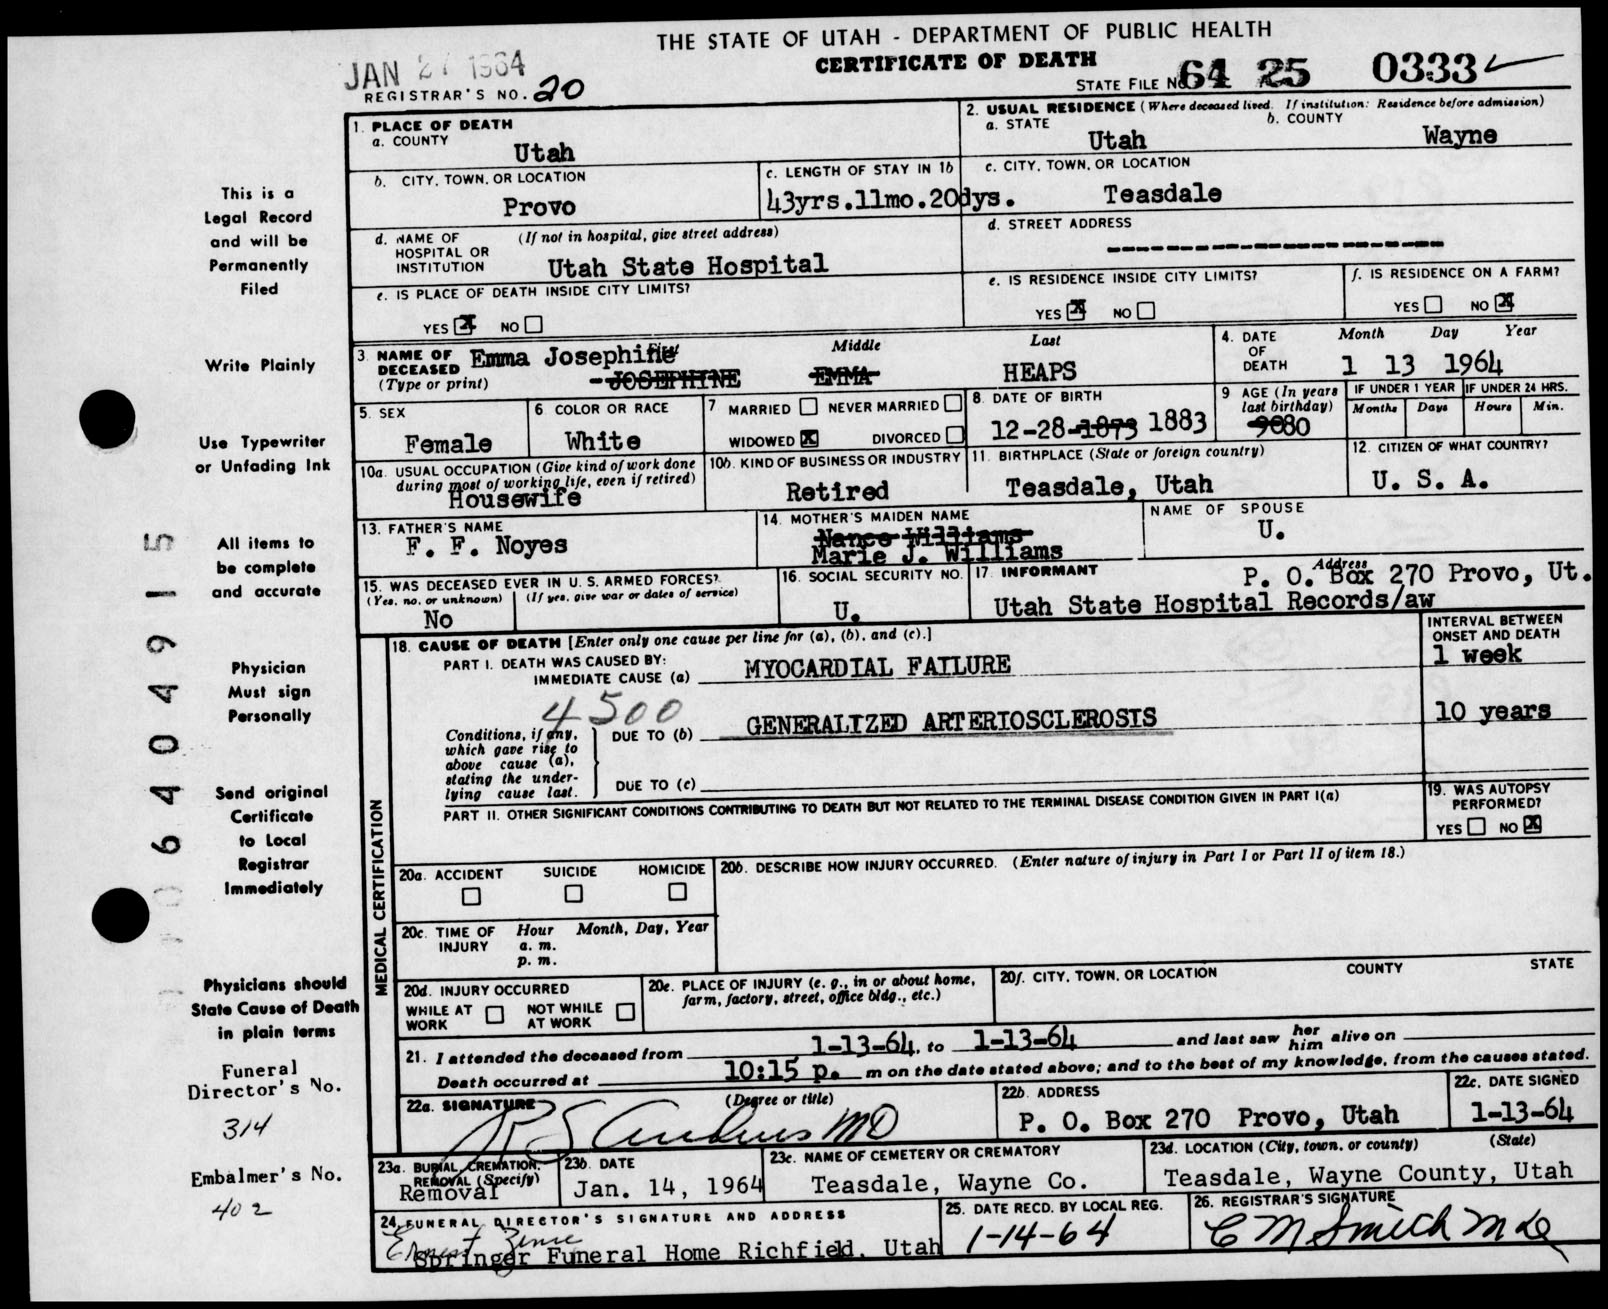 THE STATE OF UTAH - DEPARTMENT OF PUBLIC HEALTH
CERTIFICATE OF DEATH
JAN 27 1964
REGISTRAR'S NO. 20
STATE FILE NO. 64 25 0333
This is a
Legal Record
and will be
Permanently
Filed
Write Plainly
Use Typewriter
or Unfading Ink
All items to
be complete
and accurate
Physician
Must sign
Personally
Send original
Certificate
to Local
Registrar
Immediately
Physicians should
State Cause of Death
in plain terms
Funeral
Director's No.
314
Embalmer's No.
402
6404915
1. PLACE OF DEATH
a. COUNTY
Utah
b. CITY, TOWN, OR LOCATION
Provo
c. LENGTH OF STAY IN 1b
43yrs.11mo.20dys.
d. NAME OF HOSPITAL OR INSTITUTION (If not in hospital, give street address)
Utah State Hospital
e. IS PLACE OF DEATH INSIDE CITY LIMITS?
YES X NO
2. USUAL RESIDENCE (Where deceased lived. If institution: Residence before admission)
a. STATE
Utah
b. COUNTY
Wayne
c. CITY, TOWN, OR LOCATION
Teasdale
d. STREET ADDRESS
--------------------
e. IS RESIDENCE INSIDE CITY LIMITS?
YES X NO
f. IS RESIDENCE ON A FARM?
YES NO X
3. NAME OF DECEASED (Type or print)
First Middle Last
Emma Josephine
JOSEPHINE EMMA HEAPS
4. DATE OF DEATH Month Day Year
1 13 1964
5. SEX
Female
6 COLOR OR RACE
White
7 MARRIED NEVER MARRIED
WIDOWED X DIVORCED
8. DATE OF BIRTH
12-28-1873 1883
9 AGE (In years last birthday)
9080
IF UNDER 1 YEAR IF UNDER 24 HRS.
Months Days Hours Min.
10a. USUAL OCCUPATION (Give kind of work done during most of working life, even if retired)
Housewife
10b. KIND OF BUSINESS OR INDUSTRY
Retired
11. BIRTHPLACE (State or foreign country)
Teasdale, Utah
12. CITIZEN OF WHAT COUNTRY?
U. S. A.
13. FATHER'S NAME
F. F. Noyes
14. MOTHER'S MAIDEN NAME
Nance Williams
Marie J. Williams
NAME OF SPOUSE
U.
15. WAS DECEASED EVER IN U. S. ARMED FORCES?
(Yes, no, or unknown) (If yes, give war or dates of service)
No
16. SOCIAL SECURITY NO.
U.
17. INFORMANT Address
P. O. Box 270 Provo, Ut.
Utah State Hospital Records/aw
MEDICAL CERTIFICATION
18. CAUSE OF DEATH [Enter only one cause per line for (a), (b), and (c).]
INTERVAL BETWEEN ONSET AND DEATH
PART I. DEATH WAS CAUSED BY:
IMMEDIATE CAUSE (a) MYOCARDIAL FAILURE 1 week
4500
Conditions, if any, which gave rise to above cause (a), stating the underlying cause last.
DUE TO (b) GENERALIZED ARTERIOSCLEROSIS 10 years
DUE TO (c)
PART II. OTHER SIGNIFICANT CONDITIONS CONTRIBUTING TO DEATH BUT NOT RELATED TO THE TERMINAL DISEASE CONDITION GIVEN IN PART I(a)
19. WAS AUTOPSY PERFORMED?
YES NO X
20a. ACCIDENT SUICIDE HOMICIDE
20b. DESCRIBE HOW INJURY OCCURRED. (Enter nature of injury in Part I or Part II of item 18.)
20c. TIME OF INJURY Hour Month, Day, Year
a. m.
p. m.
20d. INJURY OCCURRED
WHILE AT WORK NOT WHILE AT WORK
20e. PLACE OF INJURY (e. g., in or about home, farm, factory, street, office bldg., etc.)
20f. CITY, TOWN, OR LOCATION COUNTY STATE
21. I attended the deceased from 1-13-64, to 1-13-64 and last saw her him alive on
Death occurred at 10:15 p. m on the date stated above; and to the best of my knowledge, from the causes stated.
22a. SIGNATURE (Degree or title)
R S Anderson MD
22b. ADDRESS
P. O. Box 270 Provo, Utah
22c. DATE SIGNED
1-13-64
23a. BURIAL, CREMATION, REMOVAL (Specify)
Removal
23b. DATE
Jan. 14, 1964
23c. NAME OF CEMETERY OR CREMATORY
Teasdale, Wayne Co.
23d. LOCATION (City, town, or county) (State)
Teasdale, Wayne County, Utah
24. FUNERAL DIRECTOR'S SIGNATURE AND ADDRESS
Ernest
Springer Funeral Home Richfield, Utah
25. DATE RECD. BY LOCAL REG.
1-14-64
26. REGISTRAR'S SIGNATURE
C M Smith M D